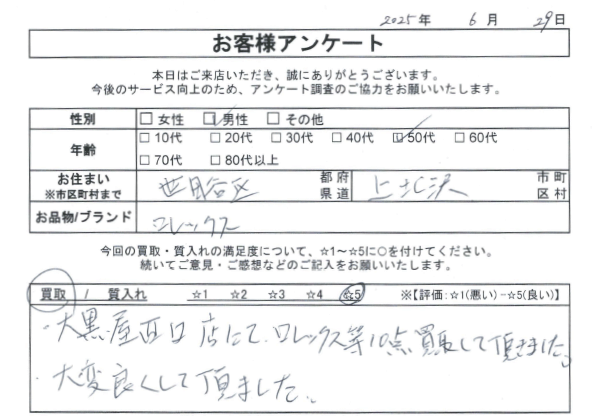 2025年 6月 29日
お客様アンケート
本日はご来店いただき、誠にありがとうございます。
今後のサービス向上のため、アンケート調査のご協力をお願いいたします。
性別 □ 女性 ☑ 男性 □ その他
年齢 □ 10代 □ 20代 □ 30代 □ 40代 ☑ 50代 □ 60代
□ 70代 □ 80代以上
お住まい ※市区町村まで 世田谷区 都府県道 上北沢 市町区村
お品物/ブランド ロレックス
今回の買取・質入れの満足度について、☆1～☆5に○を付けてください。
続いてご意見・ご感想などのご記入をお願いいたします。
買取 / 質入れ ☆1 ☆2 ☆3 ☆4 ☆5 ※【評価:☆1(悪い)−☆5(良い)】
・大黒屋西口店にて、ロレックス等10点買取して頂きました。
・大変良くして頂ました。